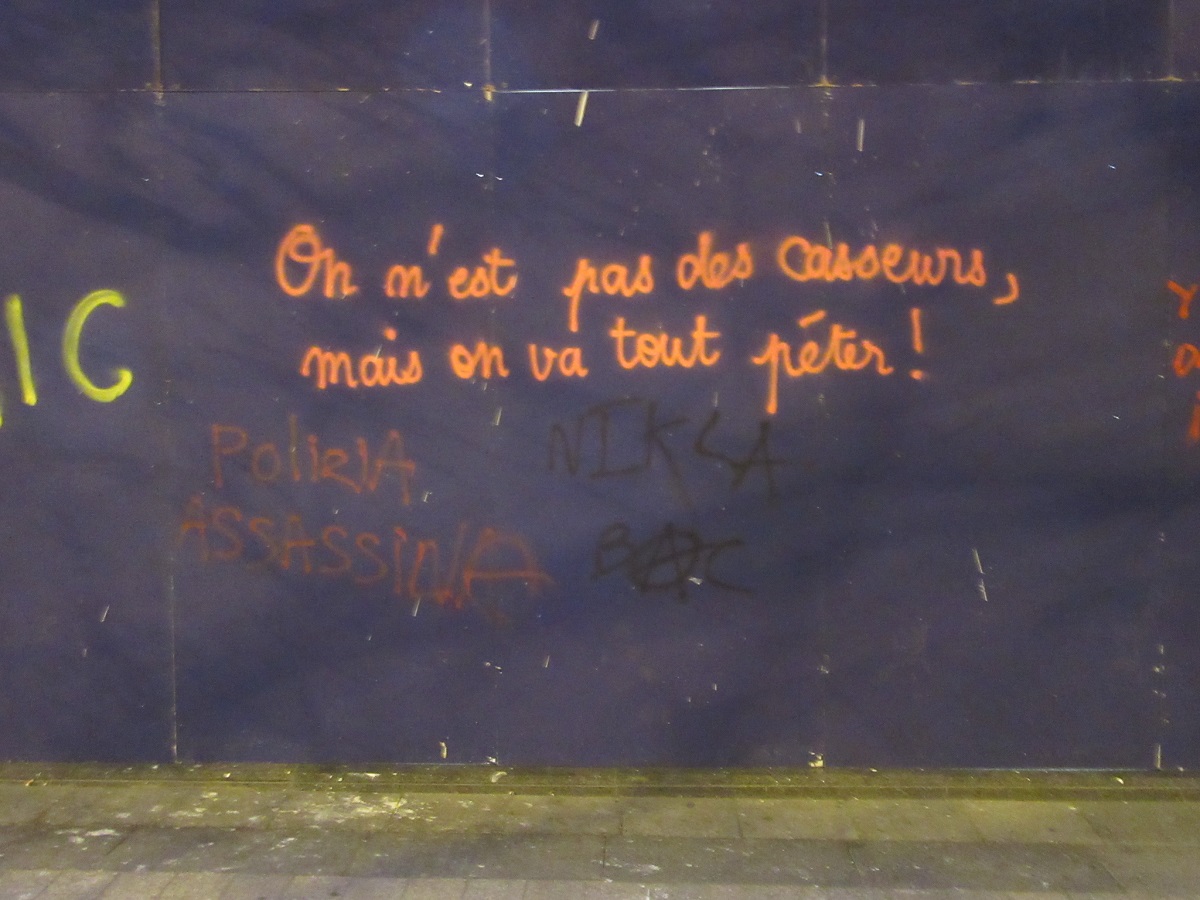 On n'est pas des casseurs,
mais on va tout péter !
IC
PoliziA
ASSASSiNA
NIK LA
BAC